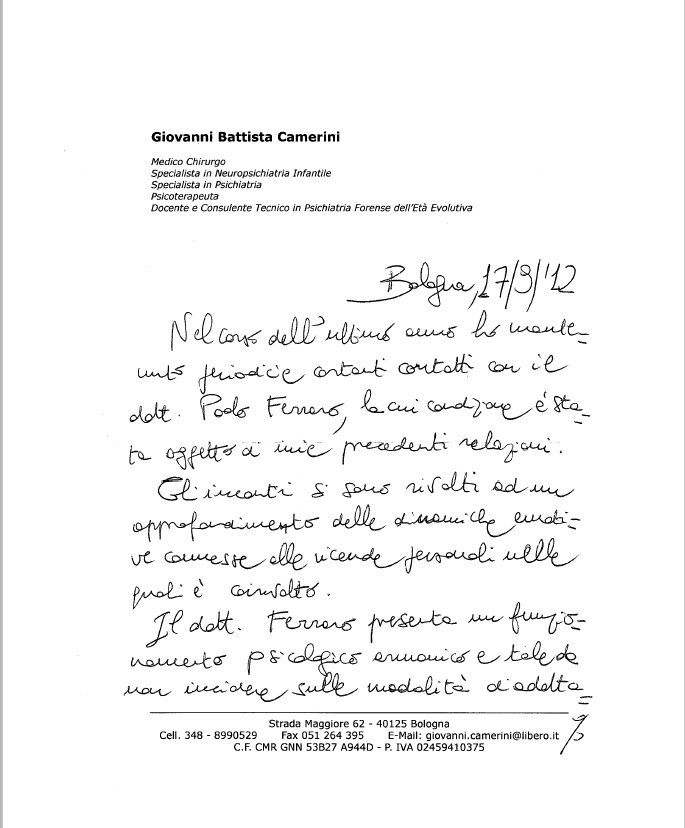 Giovanni Battista Camerini
Medico Chirurgo
Specialista in Neuropsichiatria Infantile
Specialista in Psichiatria
Psicoterapeuta
Docente e Consulente Tecnico in Psichiatria Forense dell'Età Evolutiva
Bologna, 17/9/'12
Nel corso dell'ultimo anno ho mante_
nuto periodici e costanti contatti con il
dott. Paolo Ferraro, la cui condizione è sta_
ta oggetto di mie precedenti relazioni.
Gli incontri si sono rivolti ad un
approfondimento delle dinamiche emoti_
ve connesse alle vicende personali nelle
quali è coinvolto.
Il dott. Ferraro presenta un funzio_
namento psicologico armonico e tale da
non incidere sulle modalità d'adatta_
Strada Maggiore 62 - 40125 Bologna
Cell. 348 - 8990529 Fax 051 264 395 E-Mail: giovanni.camerini@libero.it
C.F. CMR GNN 53B27 A944D - P. IVA 02459410375